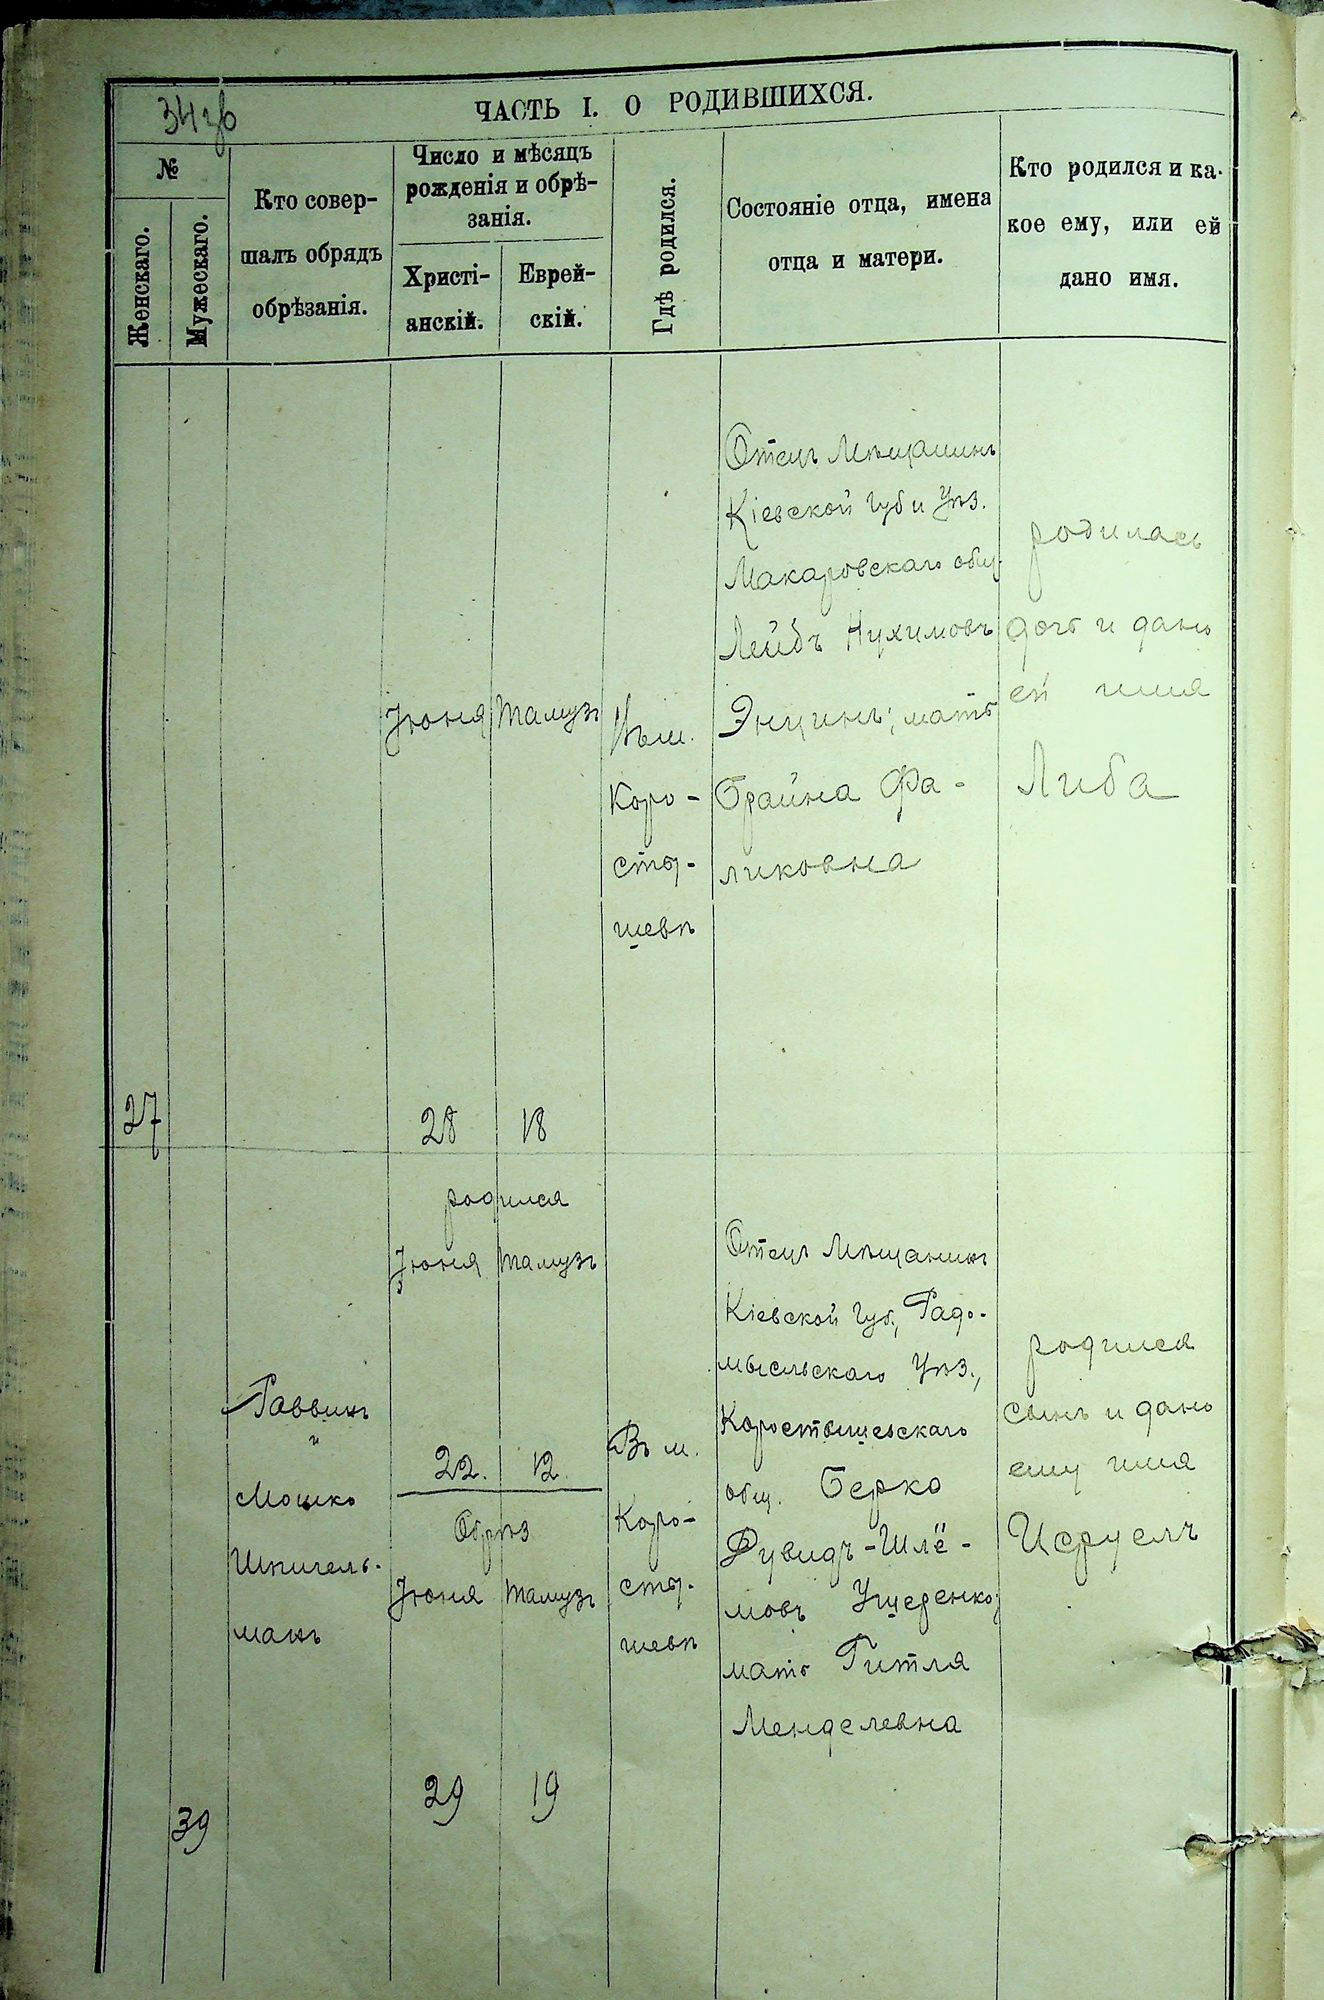 34 зв
ЧАСТЬ I. О РОДИВШИХСЯ.
№
Женскаго.
Мужескаго.
Кто совер-
шалъ обрядъ
обрѣзанія.
Число и мѣсяцъ
рожденія и обрѣ-
занія.
Христі-
анскій.
Еврей-
скій.
Гдѣ родился.
Состояніе отца, имена
отца и матери.
Кто родился и ка-
кое ему, или ей
дано имя.
27
Іюня
28
Тамузъ
18
Въ м.
Коро-
сты-
шевѣ
Отецъ Мѣщанинъ
Кіевской Губ и Уѣз.
Макаровскаго общ.
Лейбъ Нухимовъ
Энцинъ; мать
Брайна Фа-
ликовна
родилась
дочь и дано
ей имя
Либа
39
Раввинъ
и
Мошко
Шпигель-
манъ
родился
Іюня Тамузъ
22. 12.
Обрѣз
Іюня Тамузъ
29 19
Въ м.
Коро-
сты-
шевѣ
Отецъ Мѣщанинъ
Кіевской Губ., Радо-
мысльскаго Уѣз.,
Коростышевскаго
общ. Берко
Дувидъ-Шлё-
мовъ Ущеренко;
мать Гитля
Менделевна
родился
сынъ и дано
ему имя
Исруелъ